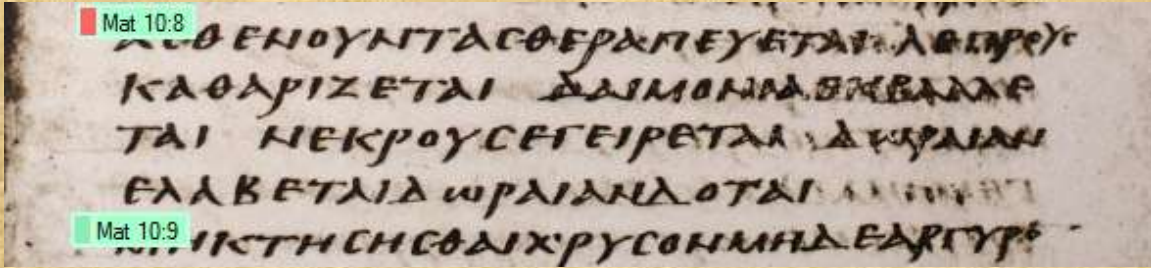 Mat 10:8
ΑCΘΕΝΟΥΝΤΑCΘΕΡΑΠΕΥΕΤΑΙ ΛΕΠΡΟΥC
ΚΑΘΑΡΙΖΕΤΑΙ ΔΑΙΜΟΝΙΑΕΚΒΑΛΛΕ
ΤΑΙ ΝΕΚΡΟΥCΕΓΕΙΡΕΤΑΙ ΔΩΡΑΙΑΝ
ΕΛΑΒΕΤΑΙΔΩΡΑΙΑΝΔΟΤΑΙ
Mat 10:9
ΜΗΚΤΗCΗCΘΑΙΧΡΥCΟΝΜΗΔΕΑΡΓΥΡΟ